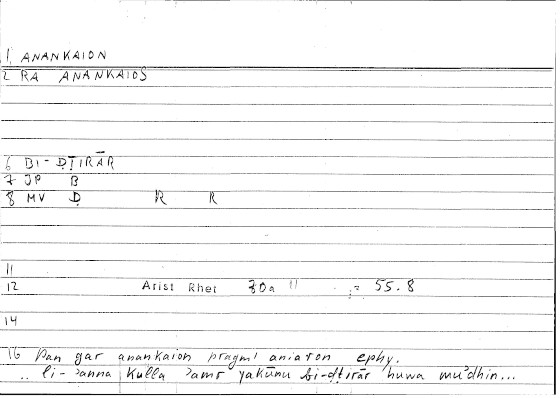 1 ANANKAION
2 RA ANANKAIOS
6 BI-ḌṬIRĀR
7 JP B
8 MV Ḍ R R
11
12 Arist Rhet 70a 11 = 55.8
14
16 Pan gar anankaion pragm' aniaton ephy.
.. li-ʾanna kulla ʾamr yakūnu bi-ḍṭirār huwa muʾdhin...